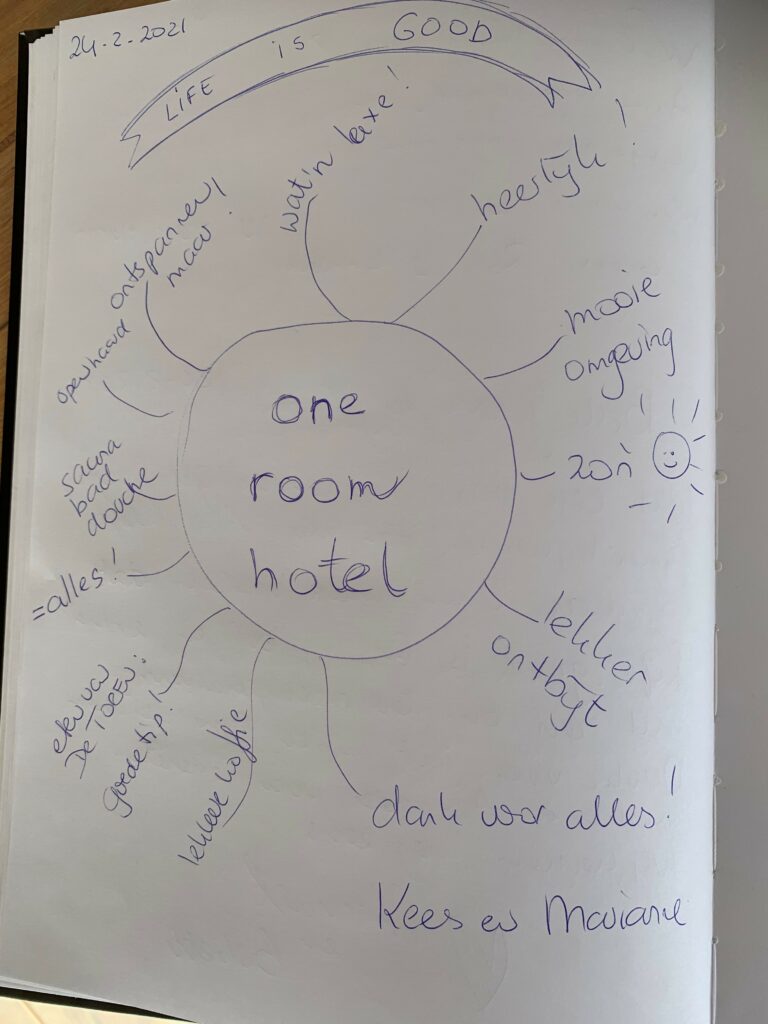 24-2-2021
LIFE IS GOOD
wat'n luxe!
heerlijk!
mooie
omgeving
zon
lekker
ontbijt
dank voor alles!
Kees en Marianne
lekkere koffie
eten van
De TOREN:
goede tip!
=alles!
sauna
bad
douche
openhaard
ontspannen,
maar!
one
room
hotel